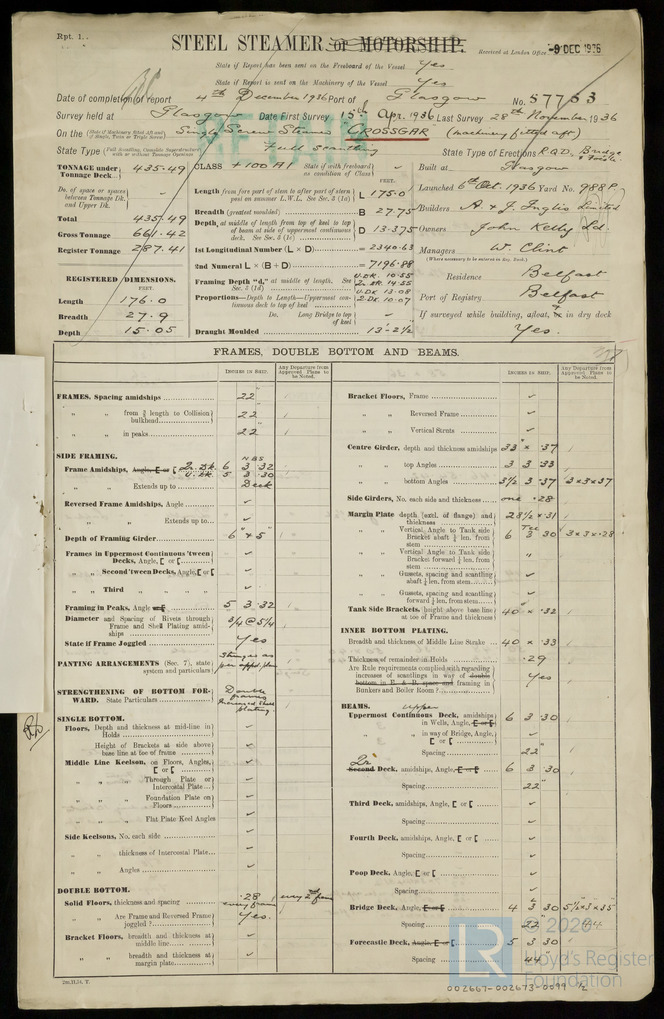 Rpt. 1.
STEEL STEAMER or MOTORSHIP.
Received at London Office -9 DEC 1936
State if Report has been sent on the Freeboard of the Vessel Yes
State if Report is sent on the Machinery of the Vessel Yes
Date of completion of report 4th December 1936 Port of Glasgow No. 57753
Survey held at Glasgow Date First Survey 15th Apr. 1936 Last Survey 28th November 1936
On the Single Screw Steamer "CROSSGAR" (machinery fitted aft)
State Type Full scantling State Type of Erections R.Q.D. Bridge & Fo'c'sle
TONNAGE under Tonnage Deck 435.49
Do. of space or spaces between Tonnage Dk. and Upper Dk.
Total 435.49
Gross Tonnage 661.42
Register Tonnage 287.41
REGISTERED DIMENSIONS.
FEET.
Length 176.0
Breadth 27.9
Depth 15.05
CLASS +100 A1 State if with freeboard as condition of Class
FEET.
Length from fore part of stem to after part of stern post on summer L.W.L. See Sec. 3 (1a) L 175.0
Breadth (greatest moulded) B 27.75
Depth, at middle of length from top of keel to top of beam at side of uppermost continuous deck. See Sec. 3 (1c) D 13.375
1st Longitudinal Number (L × D) = 2340.63
2nd Numeral L × (B + D) = 7196.88
Framing Depth "d," at middle of length. See Sec. 3 (1d) U.Dk. 10.55
Proportions—Depth to Length—Uppermost continuous deck to top of keel U.Dk 13.08
2.Dk. 10.07
Do. Long Bridge to top of keel
Draught Moulded 13'-2½
Built at Glasgow
Launched 6th Oct. 1936 Yard No. 988P
Builders A. & J. Inglis Limited
Owners John Kelly Ld.
Managers W. Clint
(Where necessary to be entered in Reg. Book.)
Residence Belfast
Port of Registry Belfast
If surveyed while building, afloat, or in dry dock
Yes.
FRAMES, DOUBLE BOTTOM AND BEAMS.
INCHES IN SHIP. Any Departure from Approved Plans to be Noted.
FRAMES, Spacing amidships 22"
" " from ⅗ length to Collision bulkhead 22
" " in peaks 22"
SIDE FRAMING.
Frame Amidships, Angle, [ or [ 2n. Dk. 6 3 .32
U. Dk. 5 3 .30
" " Extends up to Deck
Reversed Frame Amidships, Angle
" " Extends up to
Depth of Framing Girder 6" & 5"
Frames in Uppermost Continuous 'tween Decks, Angle, [ or [
" " Second 'tween Decks, Angle, [ or [
" " Third " " " "
Framing in Peaks, Angle or [ 5 3 .32
Diameter and Spacing of Rivets through Frame and Shell Plating amidships 3/4 @ 5 1/4
State if Frame Joggled Yes
PANTING ARRANGEMENTS (Sec. 7), state system and particulars Stringers as per appd. plan
STRENGTHENING OF BOTTOM FORWARD. State Particulars Double frames increased shell plating
SINGLE BOTTOM.
Floors, Depth and thickness at mid-line in Holds
Height of Brackets at side above base line at toe of frame
Middle Line Keelson, on Floors, Angles, [ or [
" " Through Plate or Intercostal Plate
" " Foundation Plate on Floors
" " Flat Plate Keel Angles
Side Keelsons, No. each side
" " thickness of Intercostal Plate
" " Angles
DOUBLE BOTTOM.
Solid Floors, thickness and spacing .28 every frame every 2nd frame
" " Are Frame and Reversed Frame joggled? Yes.
Bracket Floors, breadth and thickness at middle line
" " breadth and thickness at margin plate
2m.11.34. T.
INCHES IN SHIP. Any Departure from Approved Plans to be Noted.
Bracket Floors, Frame
" " Reversed Frame
" " Vertical Struts
Centre Girder, depth and thickness amidships 33" × .37
" " top Angles 3 3 .33
" " bottom Angles 3½ 3 .37 3 × 3 × .37
Side Girders, No. each side and thickness one .28
Margin Plate depth (excl. of flange) and thickness 28½ × .31
" " Vertical Angle to Tank Side Bracket abaft ¼ len. from stem Tee 6 3 .30 3 × 3 × .28
" " Vertical Angle to Tank Side Bracket forward ¼ len. from stem "
" " Gussets, spacing and scantling abaft ¼ len. from stem
" " Gussets, spacing and scantling forward ¼ len. from stem
Tank Side Brackets, height above base line at toe of Frame and thickness 40" × .32
INNER BOTTOM PLATING.
Breadth and thickness of Middle Line Strake 40 × .33
Thickness of remainder in Holds .29
Are Rule requirements complied with regarding increases of scantlings in way of double bottom in E. & B. space and framing in Bunkers and Boiler Room? Yes
BEAMS.
upper
Uppermost Continuous Deck, amidships in Wells, Angle, [ or [ 6 3 .30
" " in way of Bridge, Angle, [ or [
Spacing 22"
2n
Second Deck, amidships, Angle, [ or [ 6 3 .30
Spacing 22"
Third Deck, amidships, Angle, [ or [
Spacing
Fourth Deck, amidships, Angle, [ or [
Spacing
Poop Deck, Angle, [ or [
Spacing
Bridge Deck, Angle, [ or [ 4 3 .30 5½" × 3" × .35"
Spacing 22" 44
Forecastle Deck, Angle, [ or [ 5 3 .30
Spacing 44"
© 2020
LR
Lloyd's Register
Foundation
002667-002673-0099 1/2